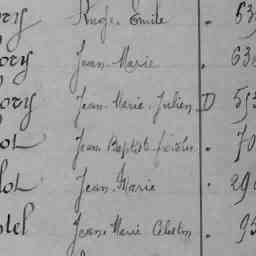 ory Ange Emile . 63
ory Jean Marie . 63
ory Jean Marie Julien D 553
lot Jean Baptiste . 70
lot Jean Marie . 29
tel Jean Marie Célestin . 95